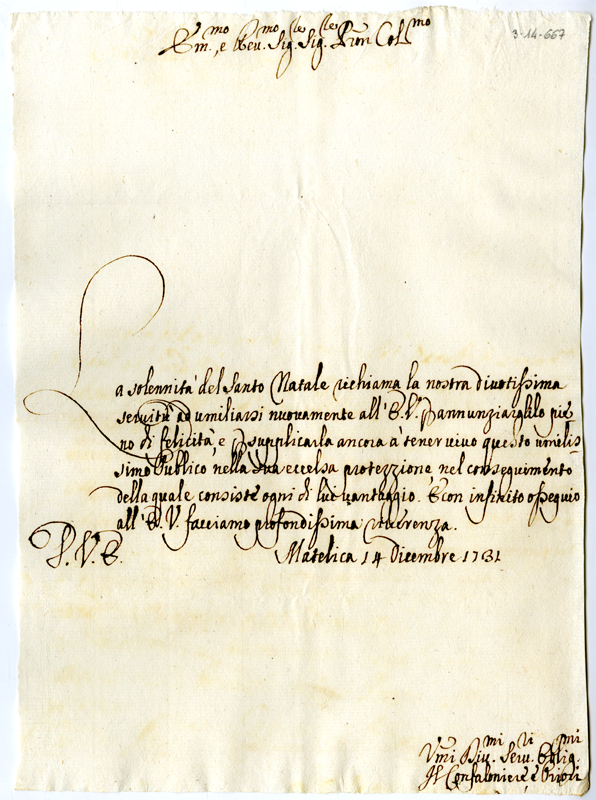 3-14-667
Em.mo, e Reu.mo Sig.re Sig.re Pron Coll.mo
La solennità del Santo Natale richiama la nostra diuotissima
seruitù ad umiliarsi nuovamente all'E.V. p annunziarglilo pie
no di felicità, e p supplicarla ancora à tener uiuo questo umelis=
simo Publico nella sua eccelsa protezzione nel conseguimento
della quale consiste ogni di lui uantaggio. E con infinito ossequio
all'E. V. facciamo profondissima riuerenza.
D. V. E. Matelica 14 Dicembre 1731
Vmi.mi Diu.mi Seru.ti Oblig.mi
Il Confaloniere e Priori